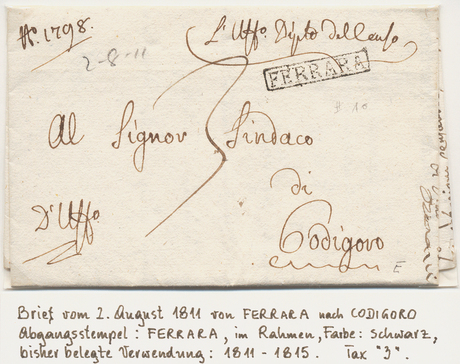 N.° 1798.
L'Uffo. Dipto del Censo
2-8-11
FERRARA
3
Al Signor Sindaco
di
D'Uffo.
Codigoro
E
Brief vom 2. August 1811 von FERRARA nach CODIGORO
Abgangsstempel: FERRARA, im Rahmen, Farbe: schwarz,
bisher belegte Verwendung: 1811 - 1815. Tax "3".